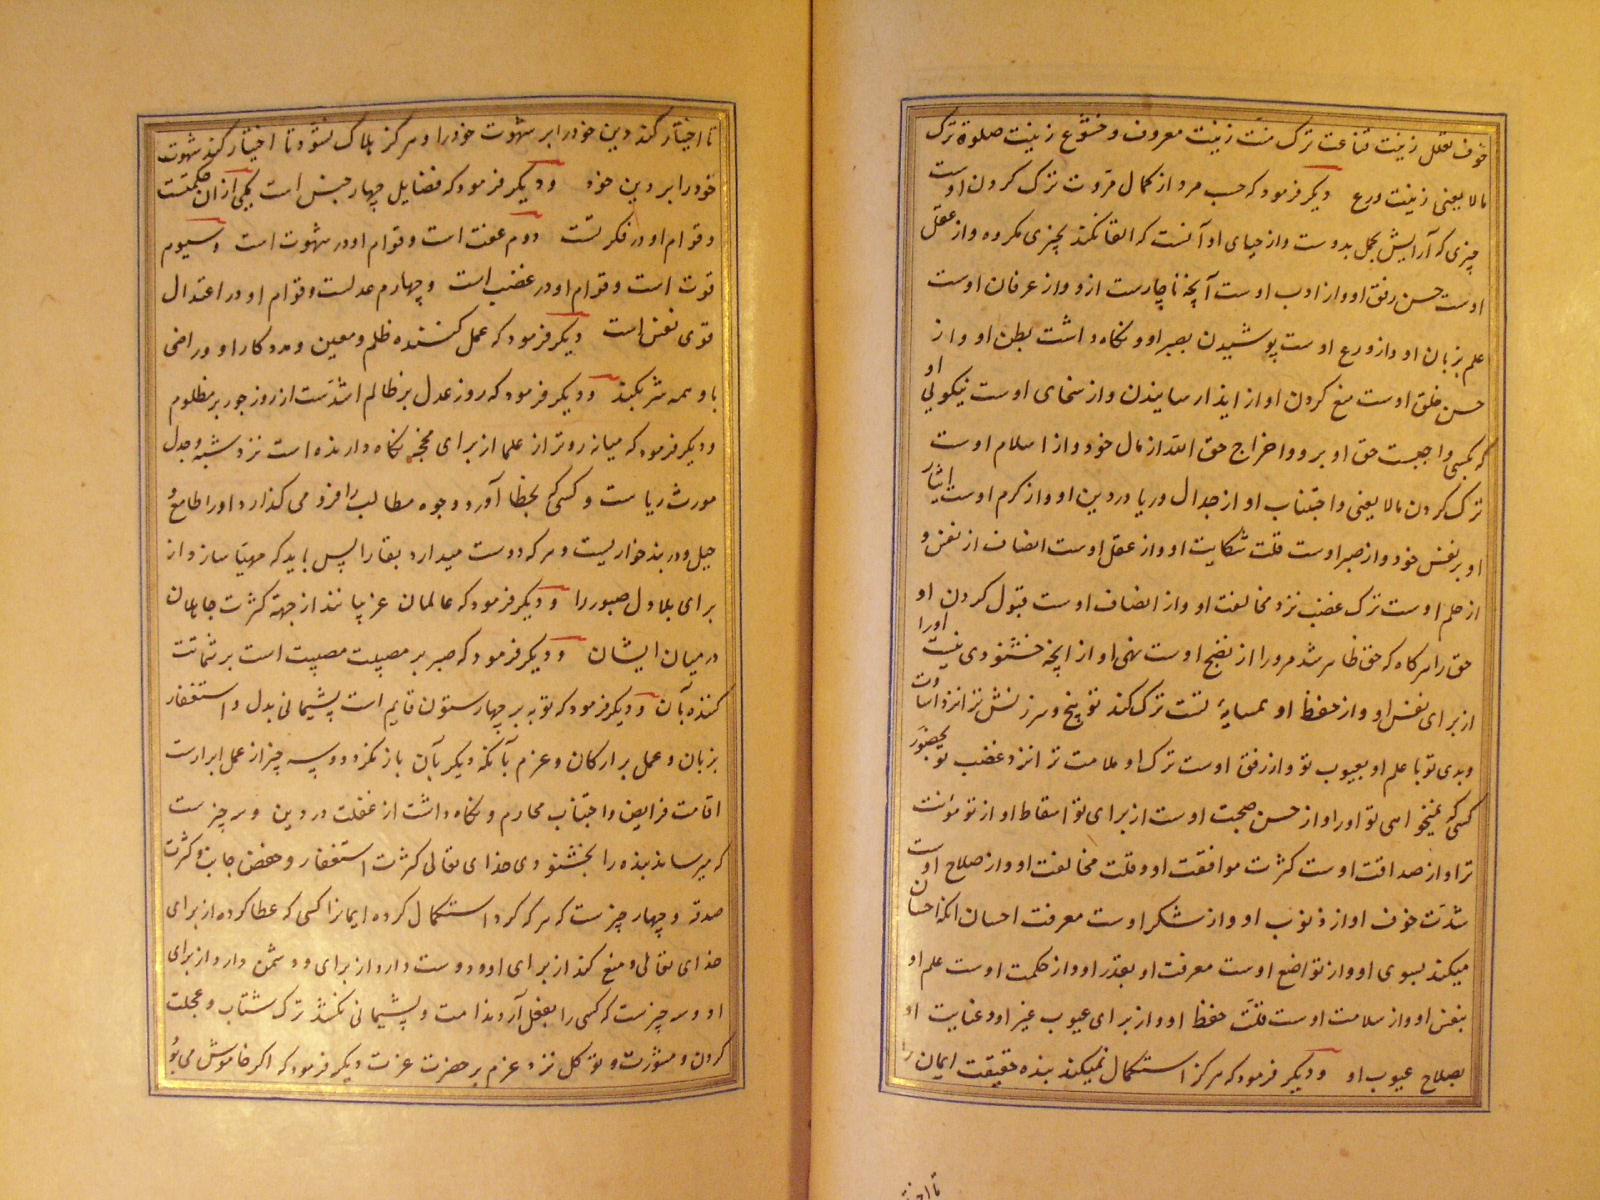 خوف تعلل زینت قناعت ترک منّت زینت معروف و خشوع زینت صلوة ترک
مالایعنی زینت ورع دیگر فرمود که حسب مرد از کمال مروّت ترک کردن اوست
چیزی که آرایش بجمل بدوست و از حیای او آنست که القا نکند بچیزی مکروه و از عقل
اوست حسن رفق او و از ادب اوست آنچه ناچارست ازو و از عرفان اوست
علم بزبان او و از ورع اوست پوشیدن بصر او و نکاه داشت بطن او و از
حسن خلق اوست منع کردن او از ایذا رسانیدن و از سخای اوست نیکوئی او
که کسی واجبست حق او برو و اخراج حق الله از مال خود و از اسلام اوست
ترک کردن مالایعنی و اجتناب او از جدال و ریا در دین او و از کرم اوست ایثار
او بر نفس خود و از صبر اوست قلت شکایت او و از عقل اوست انصاف از نفس و
از حلم اوست ترک غضب نزد مخالفت او و از انصاف اوست قبول کردن او
حق را هرکاه که حق ظاهر شد مر او را از نصح اوست نهی او از آنچه خشنودی نیست او را
از برای نفس او و از حفظ او همسایهٔ تست ترک کند توبیخ و سرزنش ترا نزد اساوت
و بدی تو با علم او بعیوب تو و از رفق اوست ترک او ملامت ترا نزد غضب تو بحضور
کسی که نمیخواهی تو او را و از حسن صحبت اوست از برای تو اسقاط او از تو مؤنت
ترا و از صداقت اوست کثرت موافقت او و قلت مخالفت او و از صلاح اوست
شدّت خوف او از ذنوب او و از شکر اوست معرفت احسان آنکه احسان
میکند بسوی او و از تواضع اوست معرفت او بقدر او و از حکمت اوست علم او
بنفس او و از سلامت اوست قلّت حفظ او و از برای عیوب غیر او و عنایت او
بصلاح عیوب او و دیگر فرمود که هرکز استکمال نمیکند بنده حقیقت ایمان را
تا اختیار کند دین خود را بر شهوت خود را و هرکز هلاک نشود تا اختیار کند شهوت
خود را بر دین خود و دیگر فرمود که فضایل چهار جنس است یکی از آن حکمتست
و قوام او در فکرتست دوم عفت است و قوام او در شهوت است و سیوم
قوت است و قوام او در غضب است و چهارم عدلست و قوام او در اعتدال
قوی نفس است دیگر فرمود که عمل کننده ظلم و معین و مددکار او و راضی
باو همه شریکند و دیگر فرمود که روز عدل بر ظالم اشدّست از روز جور بر مظلوم
و دیگر فرمود که میانه روتر از علما از برای نکاه دارنده است نزد شبه و جدل
مورث ریاست و کسی که بخطا آورد وجوه مطالب را فرو می کذارد او را طامع و
حیل و در بند خواریست و هرکه دوست میدارد بقا را پس باید که مهیّا سازد از
برای بلا دل صبور را و دیگر فرمود که عالمان غریبانند از جهة کثرت جاهلان
در میان ایشان و دیگر فرمود که صبر بر مصیبت مصیبت است بر شماتت
کننده بآن و دیگر فرمود که توبه بر چهار ستون قایم است پشیمانی بدل و استغفار
بزبان و عمل بر ارکان و عزم بآنکه دیگر بآن باز نکردد و سه چیز از عمل ابرارست
اقامت فرایض و اجتناب محارم و نکاه داشت از غفلت در دین و سه چیزست
که میرساند بنده را بخشنودی خدای تعالی کثرت استغفار و خفض جانب و کثرت
صدقه و چهار چیزست که هرکه کرد استکمال کرده ایمانرا کسی که عطا کرده از برای
خدای تعالی و منع کند از برای او و دوست دارد از برای و دشمن دارد از برای
او و سه چیزست که کسی را بفعل آرد ندامت و پشیمانی نکشد ترک شتاب و عجلت
کردن و مشورت و توکل نزد عزم بر حضرت عزت دیگر فرمود که اکر خاموش می بود
تا اختیار